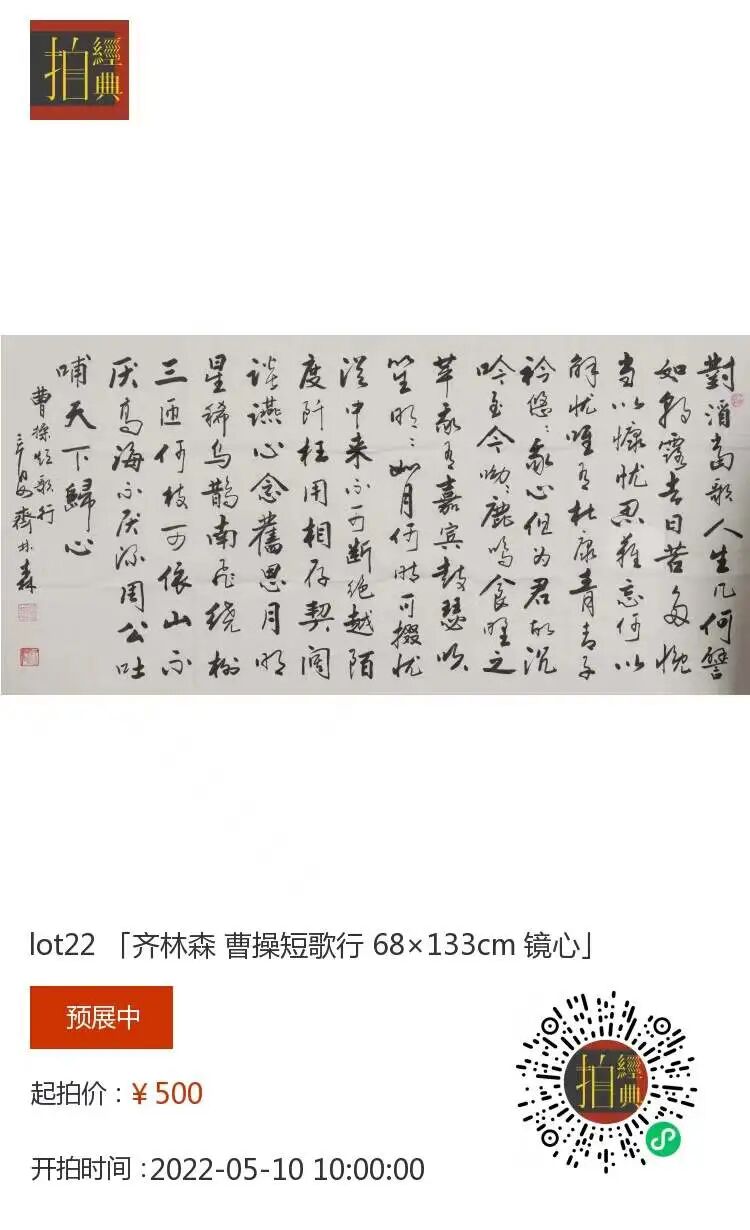 經典
拍
對酒當歌人生几何譬
如朝露去日苦多慨
当以慷忧思難忘何以
解忧唯有杜康青青子
衿悠〻我心但为君故沉
吟至今呦〻鹿鸣食野之
苹我有嘉宾鼓瑟吹
笙明〻如月何时可掇忧
從中来不可断绝越陌
度阡枉用相存契阔
谈讌心念舊恩月明
星稀乌鹊南飞绕树
三匝何枝可依山不
厌高海不厌深周公吐
哺天下歸心
曹操短歌行
辛丑齊林森
lot22 「齐林森 曹操短歌行 68×133cm 镜心」
预展中
起拍价：¥ 500
开拍时间：2022-05-10 10:00:00
經典
拍